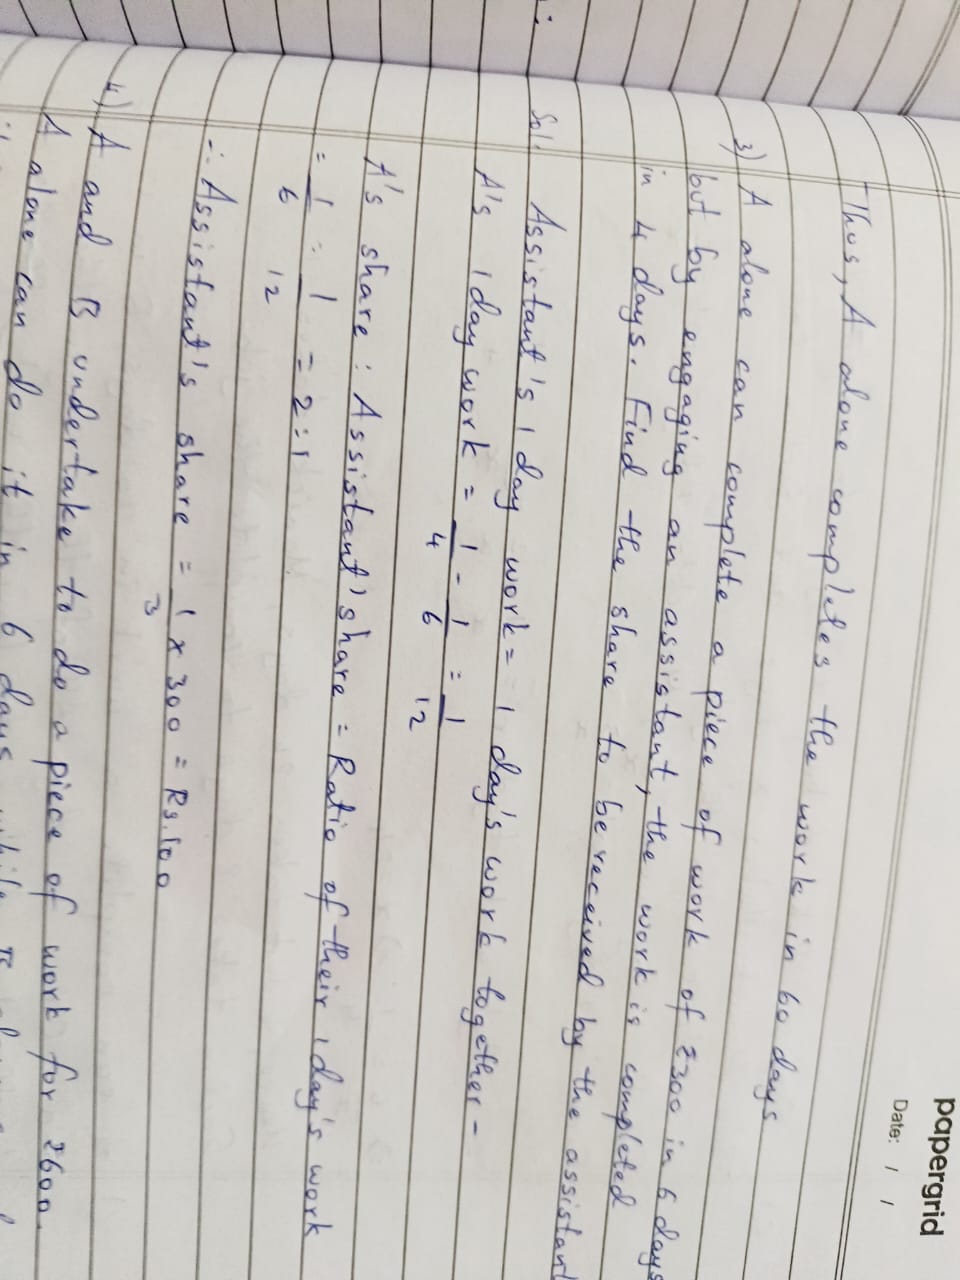 papergrid
Date: / /
Thus, A alone completes the work in 60 days
3) A alone can complete a piece of work of ₹300 in 6 days
but by engaging an assistant, the work is completed
in 4 days. Find the share to be received by the assistant
Sol. Assistant's 1 day work = 1 day's work together -
A's 1 day work = 1/4 - 1/6 = 1/12
A's share : Assistant' share = Ratio of their 1 day's work
= 1/6 : 1/12 = 2:1
∴ Assistant's share = 1/3 x 300 = Rs. 100
4) A and B undertake to do a piece of work for ₹600.
A alone can do it in 6 days while B